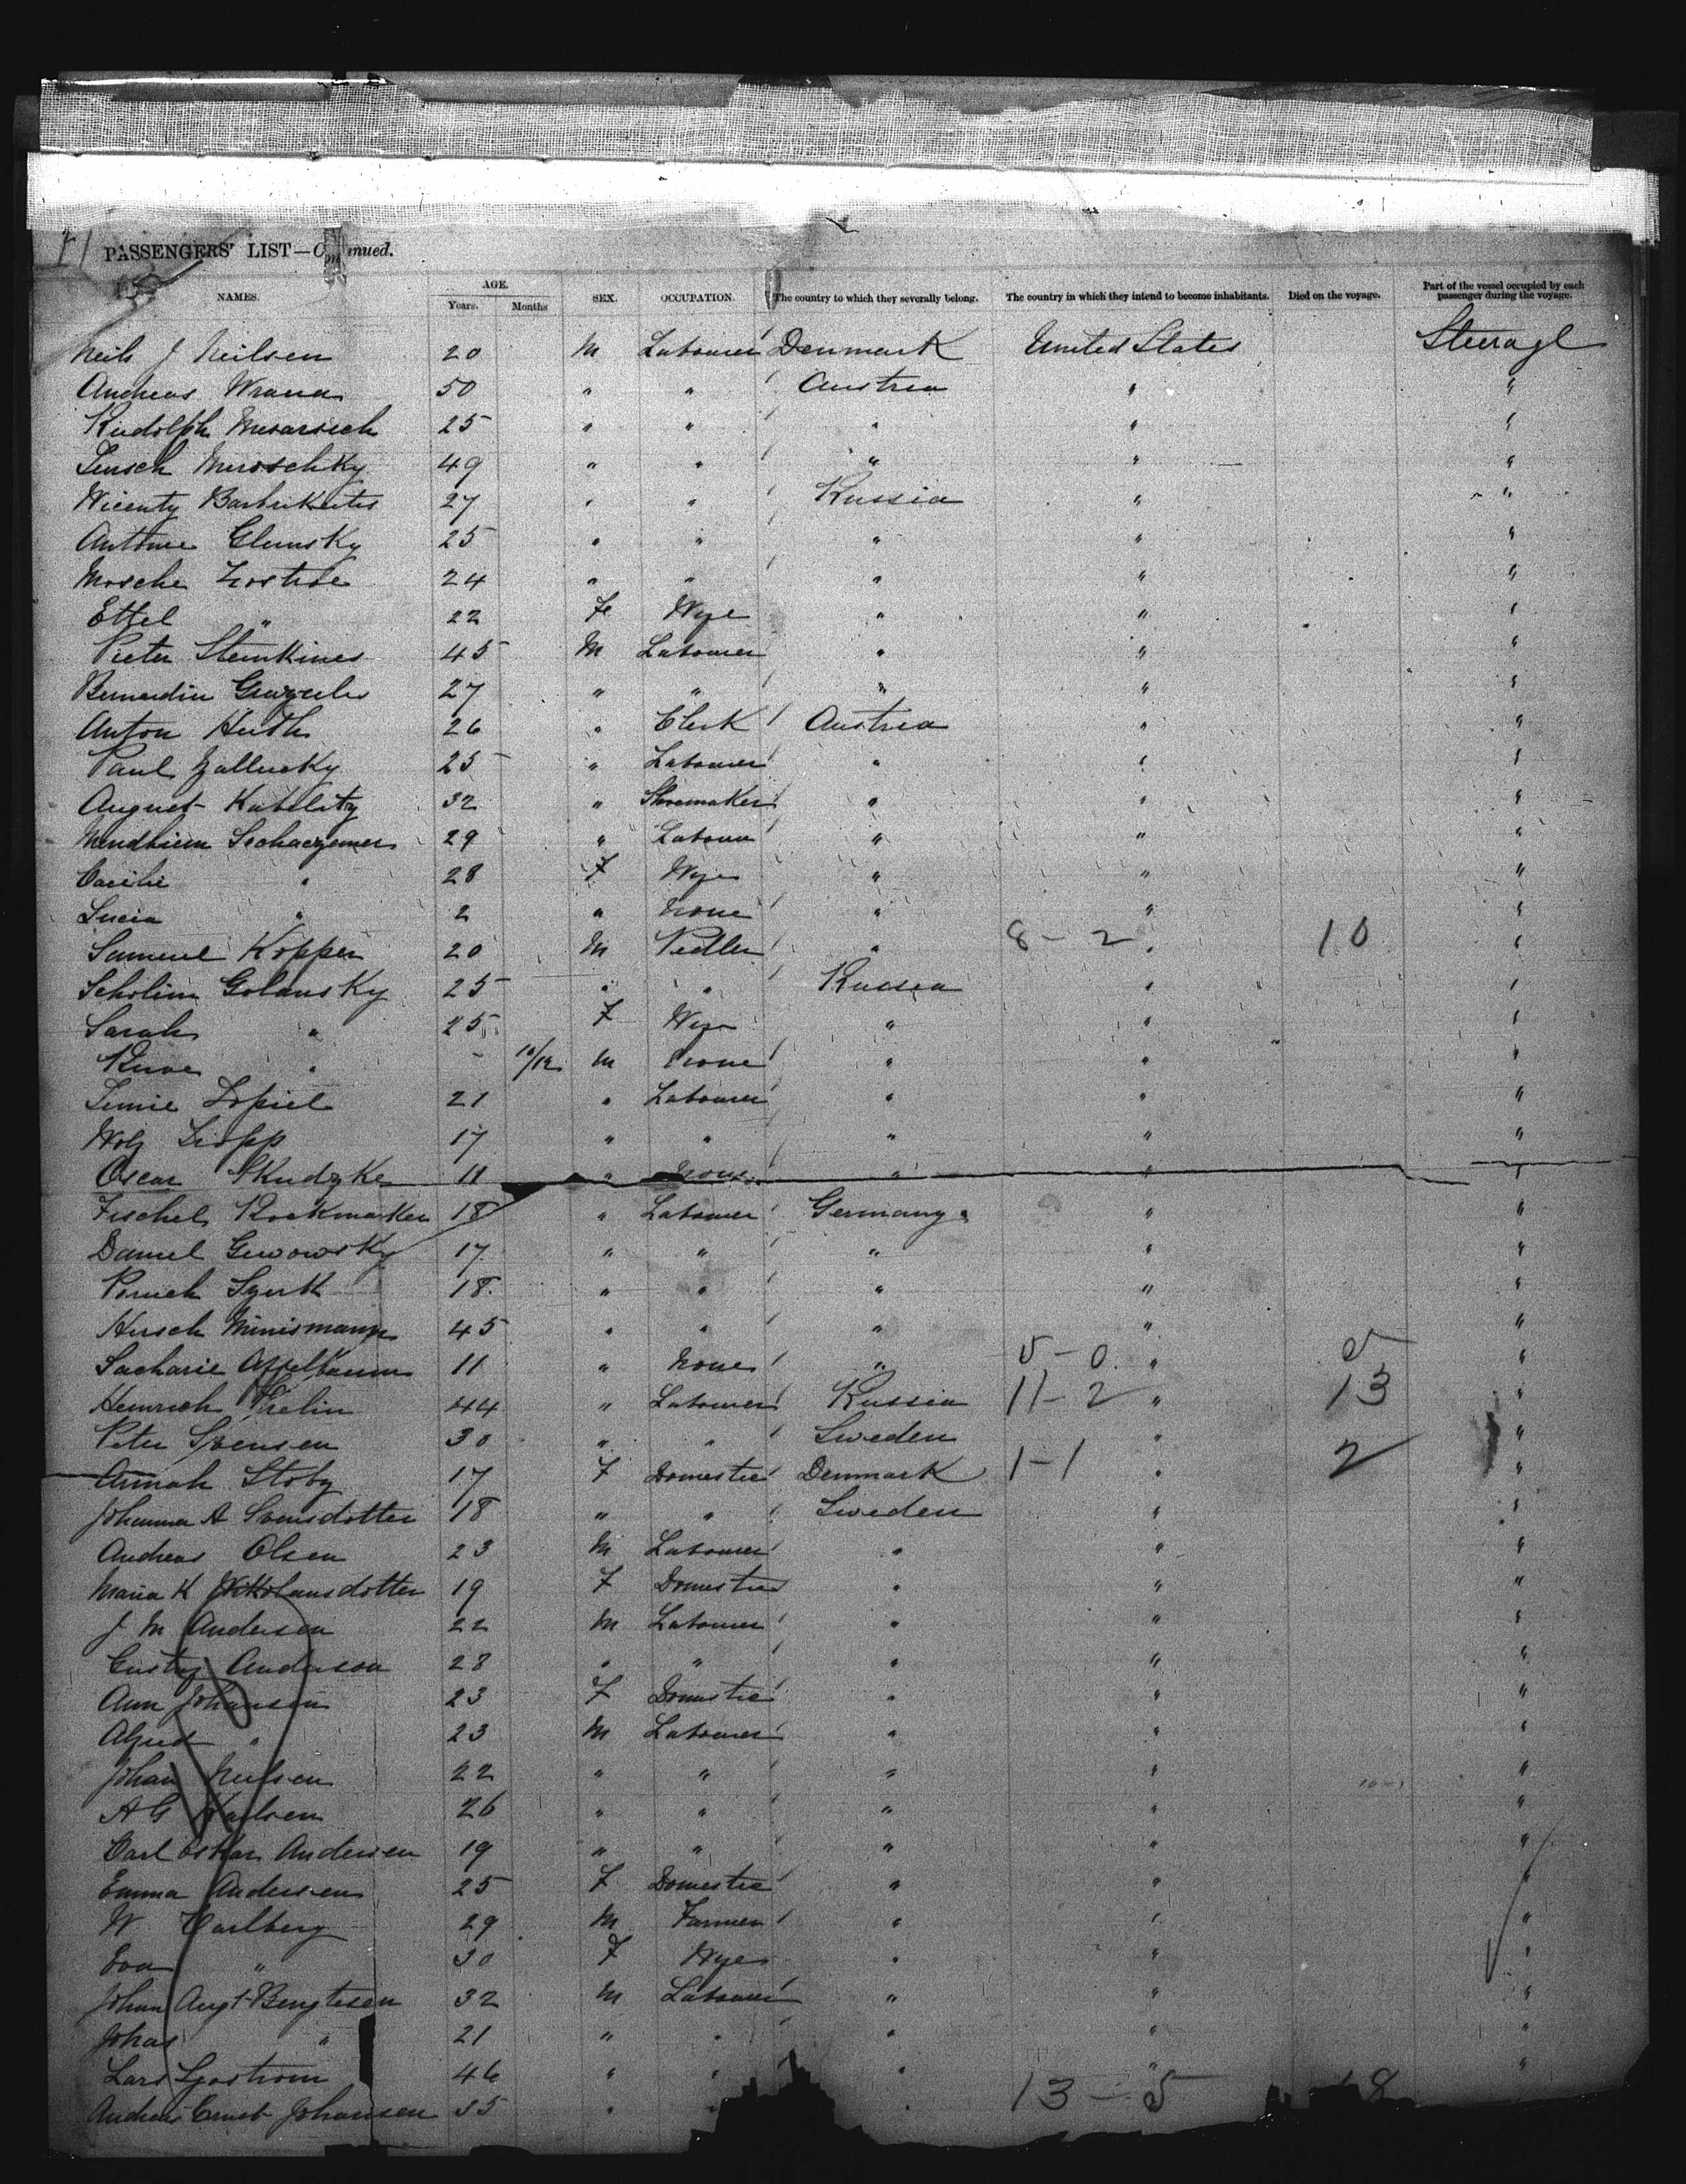 PASSENGERS' LIST—Continued.
NAMES. AGE. Years. Months SEX. OCCUPATION. The country to which they severally belong. The country in which they intend to become inhabitants. Died on the voyage. Part of the vessel occupied by each passenger during the voyage.
Neils J Neilsen 20 M Labourer Denmark United States Steerage
Andreas Wrana 50 " " Austria " "
Rudolph 25 " " " " "
49 " " " " "
Wicenty 27 " " Russia " "
Antone Glemsky 25 " " " " "
Mosche 24 " " " " "
Ettel " 22 F Wife " " "
Pieter Stemkines 45 M Labourer " " "
Bernardin 27 " " " " "
Anton Huth 26 " Clerk Austria " "
Paul Zallucky 25 " Labourer " " "
August Kabelitz 32 " Shoemaker " " "
29 " Labour " " "
Cacilie " 28 F Wife " " "
Lucia " 2 " None " " "
Samuel Kopper 20 M Pedler " 8 - 2 " 10 "
Scholim Golansky 25 " " Russia " "
Sarah " 25 F Wife " " "
" - 10/12 M None " " "
21 " Labourer " " "
Wolf 17 " " " " "
Oscar Skudzke 11 " None " " "
Fischel Rookmaker 18 " Labourer Germany " "
Daniel Gewowsky 17 " " " " "
18 " " " " "
Hirsch Minismann 45 " " " " "
Sacharie Appelbaum 11 " None " 5 - 0 " 5 "
Heinrich 44 " Labourer Russia 11 - 2 " 13 "
Peter Svensen 30 " " Sweden " "
Annah Stoby 17 F Domestic Denmark 1 - 1 " 2 "
Johanna A Svensdotter 18 " " Sweden " "
Andreas Olsen 23 M Labourer " " "
Maria K Nikolausdotter 19 F Domestic " " "
J M Andersen 22 M Labourer " " "
Gustaf Andersson 28 " " " " "
Ann Johansen 23 F Domestic " " "
Alfred " 23 M Labourer " " "
Johan Neilsen 22 " " " " "
A G Karlsen 26 " " " " "
Carl Oskar Andersen 19 " " " " "
Emma Andersen 25 F Domestic " " "
W Carlberg 29 M Farmer " " "
Eva " 30 F Wife " " "
Johan Augt Bengtesen 32 M Labourer " " "
Johas " 21 " " " " "
Lars Sjostrom 46 " " " " "
Andreas Ernst Johansen 35 " " " 13 - 5 18